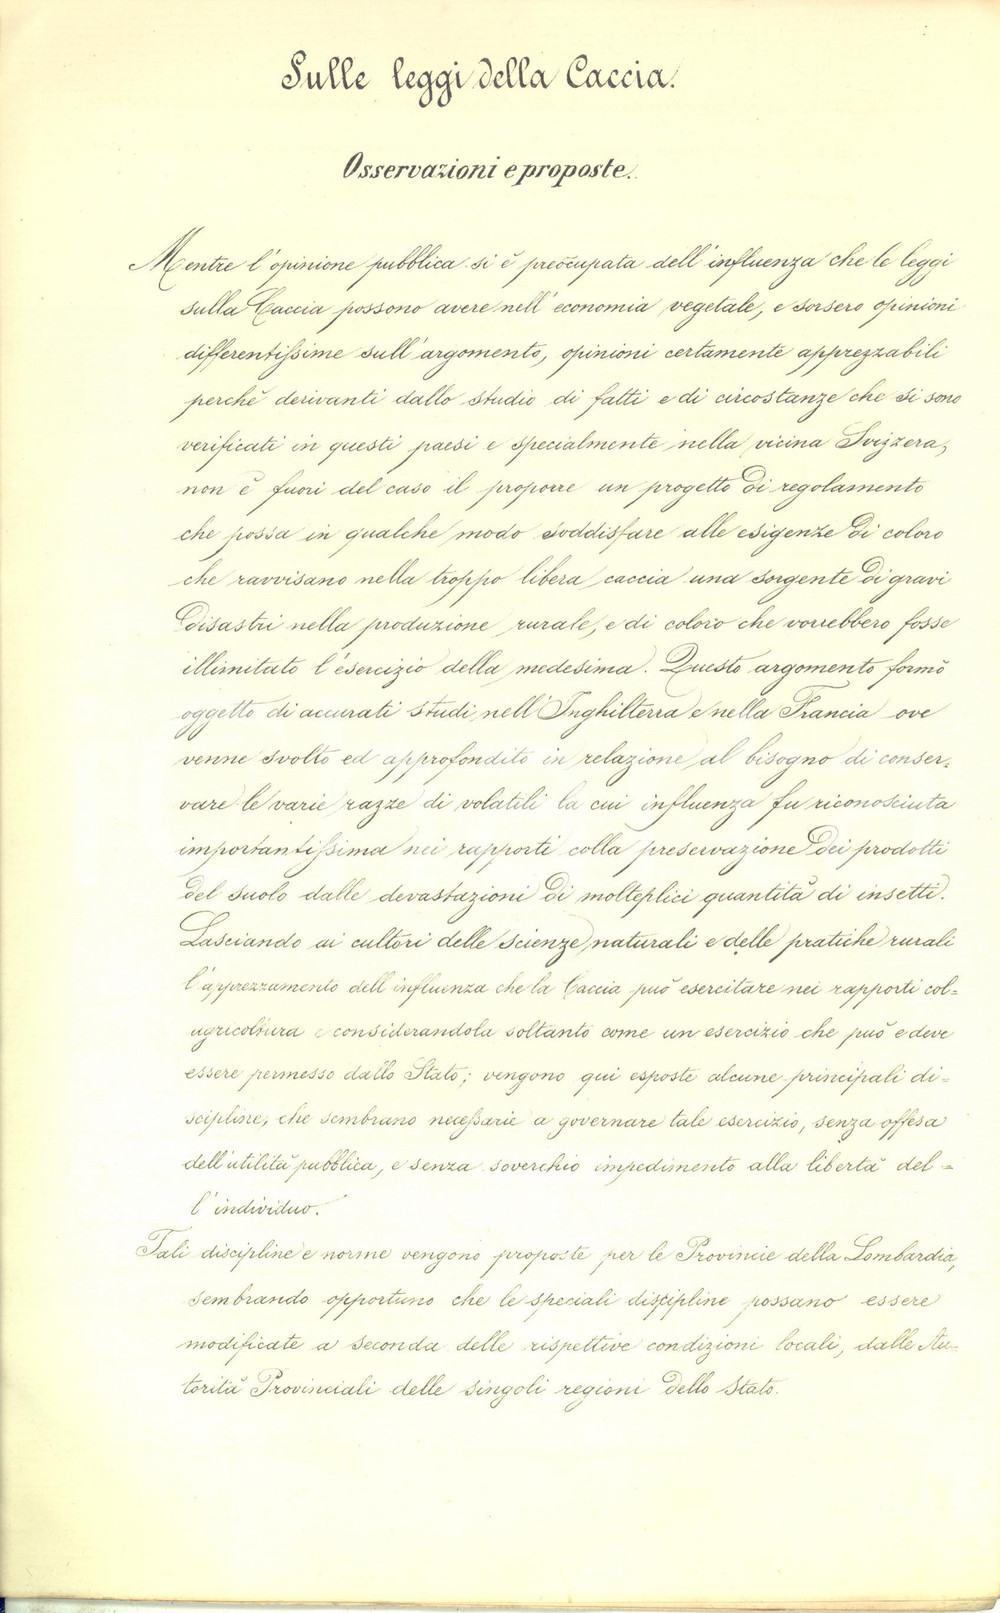 Sulle leggi della Caccia.
Osservazioni e proposte.
Mentre l'opinione pubblica si è preoccupata dell'influenza che le leggi
sulla Caccia possono avere nell'economia vegetale, e sorsero opinioni
differentissime sull'argomento, opinioni certamente apprezzabili
perchè derivanti dallo studio di fatti e di circostanze che si sono
verificati in questi paesi e specialmente nella vicina Svizzera,
non è fuori del caso il proporre un progetto di regolamento
che possa in qualche modo soddisfare alle esigenze di coloro
che ravvisano nella troppo libera caccia una sorgente di gravi
disastri nella produzione rurale, e di coloro che vorrebbero fosse
illimitato l'esercizio della medesima. Questo argomento formò
oggetto di accurati studi nell'Inghilterra e nella Francia ove
venne svolto ed approfondito in relazione al bisogno di conser-
vare le varie razze di volatili la cui influenza fu riconosciuta
importantissima nei rapporti colla preservazione dei prodotti
del suolo dalle devastazioni di molteplici quantità di insetti.
Lasciando ai cultori delle scienze naturali e delle pratiche rurali
l'apprezzamento dell'influenza che la Caccia può esercitare nei rapporti col=
agricoltura e considerandola soltanto come un esercizio che può e deve
essere permesso dallo Stato; vengono qui esposte alcune principali di=
scipline, che sembrano necessarie a governare tale esercizio, senza offesa
dell'utilità pubblica, e senza soverchio impedimento alla libertà del=
l'individuo.
Tali discipline e norme vengono proposte per le Provincie della Lombardia,
sembrando opportuno che le speciali discipline possano essere
modificate a seconda delle rispettive condizioni locali, dalle Au-
torità Provinciali delle singoli regioni dello Stato.